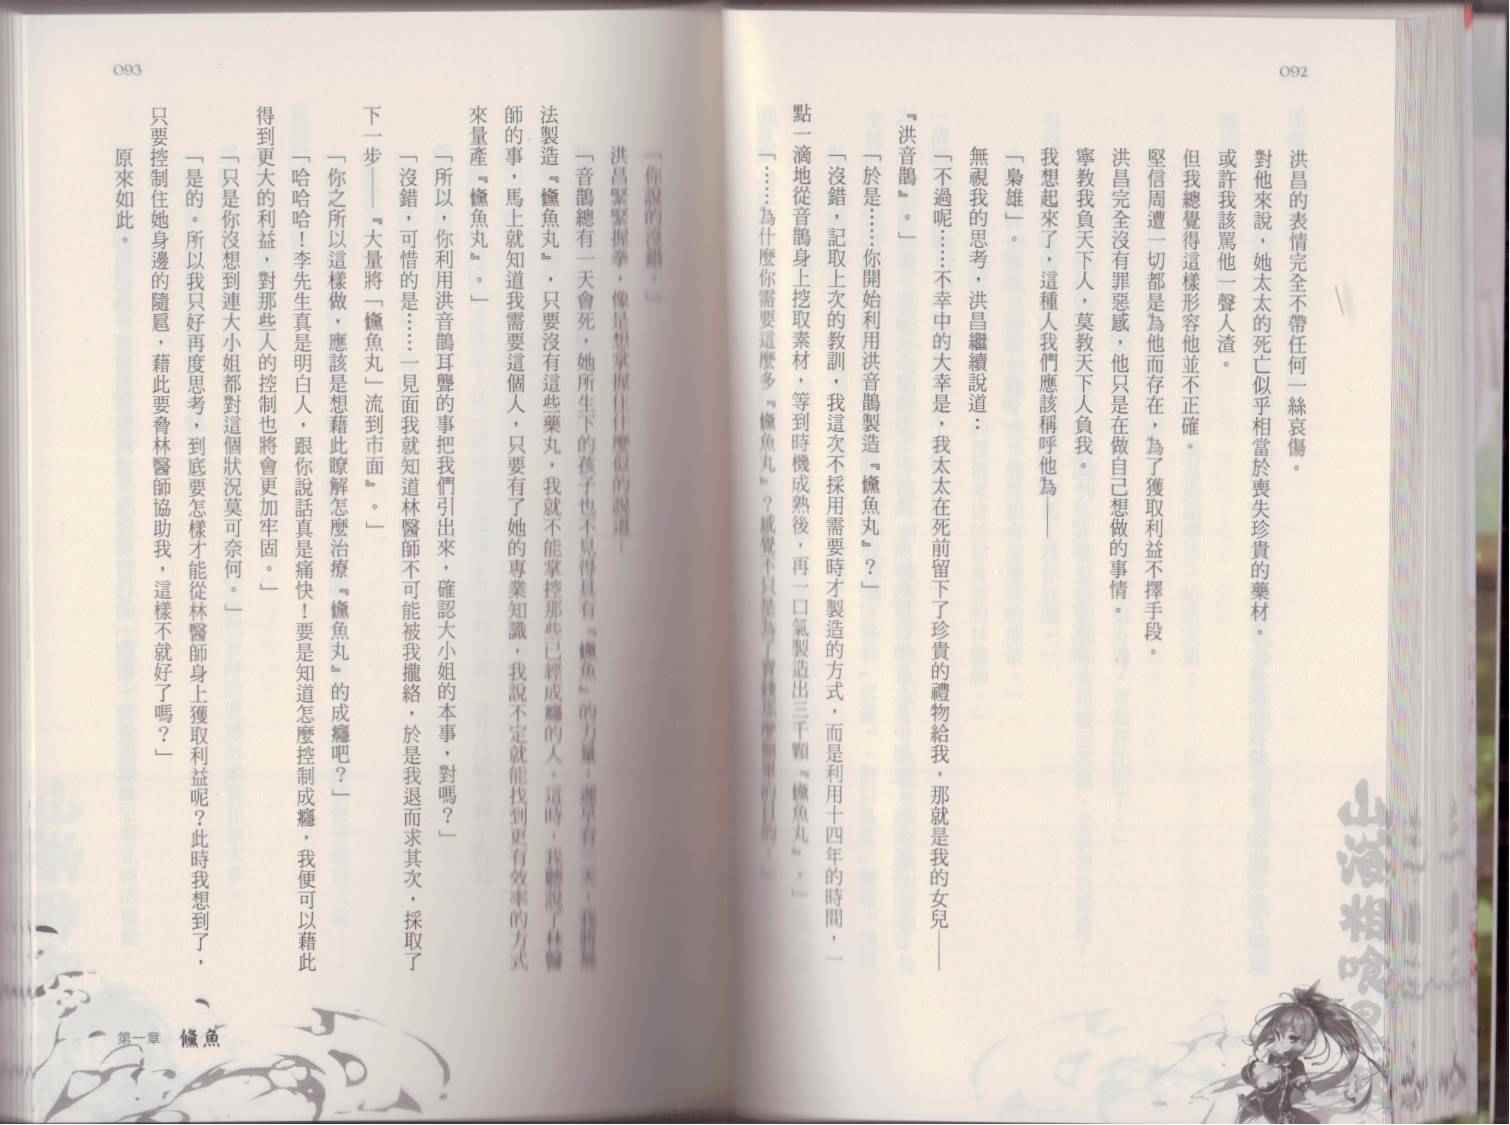 092
洪昌的表情完全不帶任何一絲哀傷。
對他來說，她太太的死亡似乎相當於喪失珍貴的藥材。
或許我該罵他一聲人渣。
但我總覺得這樣形容他並不正確。
堅信周遭一切都是為他而存在，為了獲取利益不擇手段。
洪昌完全沒有罪惡感，他只是在做自己想做的事情。
寧教我負天下人，莫教天下人負我。
我想起來了，這種人我們應該稱呼他為——
「梟雄」。
無視我的思考，洪昌繼續說道：
「不過呢……不幸中的大幸是，我太太在死前留下了珍貴的禮物給我，那就是我的女兒——
『洪音鵲』。」
「於是……你開始利用洪音鵲製造『儵魚丸』？」
「沒錯，記取上次的教訓，我這次不採用需要時才製造的方式，而是利用十四年的時間，一
點一滴地從音鵲身上挖取素材，等到時機成熟後，再一口氣製造出三千顆『儵魚丸』。」
「……為什麼你需要這麼多『儵魚丸』？感覺不只是為了賺錢那麼簡單的目的。」
山海相喰
093
「你說的沒錯。」
洪昌緊緊握拳，像是想掌握住什麼似的說道：
「音鵲總有一天會死，她所生下的孩子也不見得具有『儵魚』的力量，遲早有一天，我將無
法製造『儵魚丸』，只要沒有這些藥丸，我就不能掌控那些已經成癮的人。這時，我聽說了林醫
師的事，馬上就知道我需要這個人，只要有了她的專業知識，我說不定就能找到更有效率的方式
來量產『儵魚丸』。」
「所以，你利用洪音鵲耳聾的事把我們引出來，確認大小姐的本事，對嗎？」
「沒錯，可惜的是……一見面我就知道林醫師不可能被我攏絡，於是我退而求其次，採取了
下一步——『大量將「儵魚丸」流到市面』。」
「你之所以這樣做，應該是想藉此瞭解怎麼治療『儵魚丸』的成癮吧？」
「哈哈哈！李先生真是明白人，跟你說話真是痛快！要是知道怎麼控制成癮，我便可以藉此
得到更大的利益，對那些人的控制也將會更加牢固。」
「只是你沒想到連大小姐都對這個狀況莫可奈何。」
「是的。所以我只好再度思考，到底要怎樣才能從林醫師身上獲取利益呢？此時我想到了，
只要控制住她身邊的隨扈，藉此要脅林醫師協助我，這樣不就好了嗎？」
原來如此。
第一章 儵魚